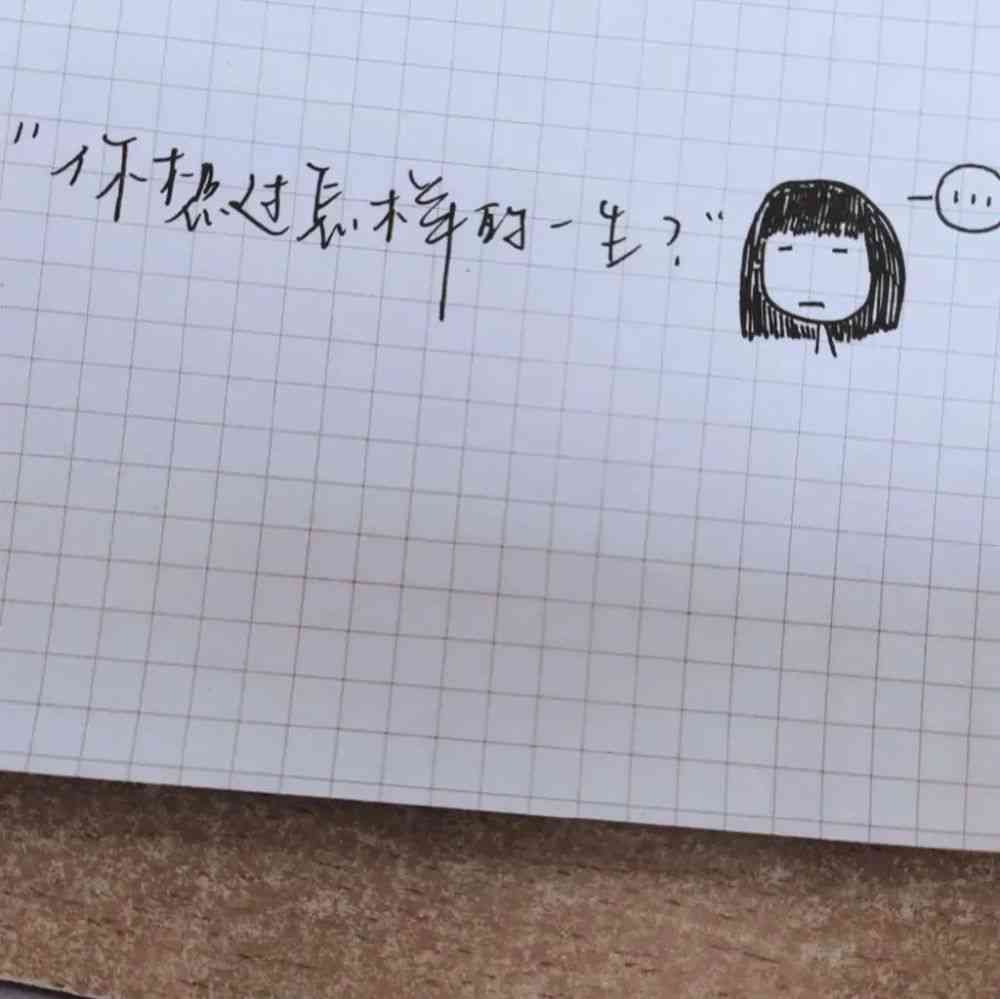 "你想过怎样的一生？" -…